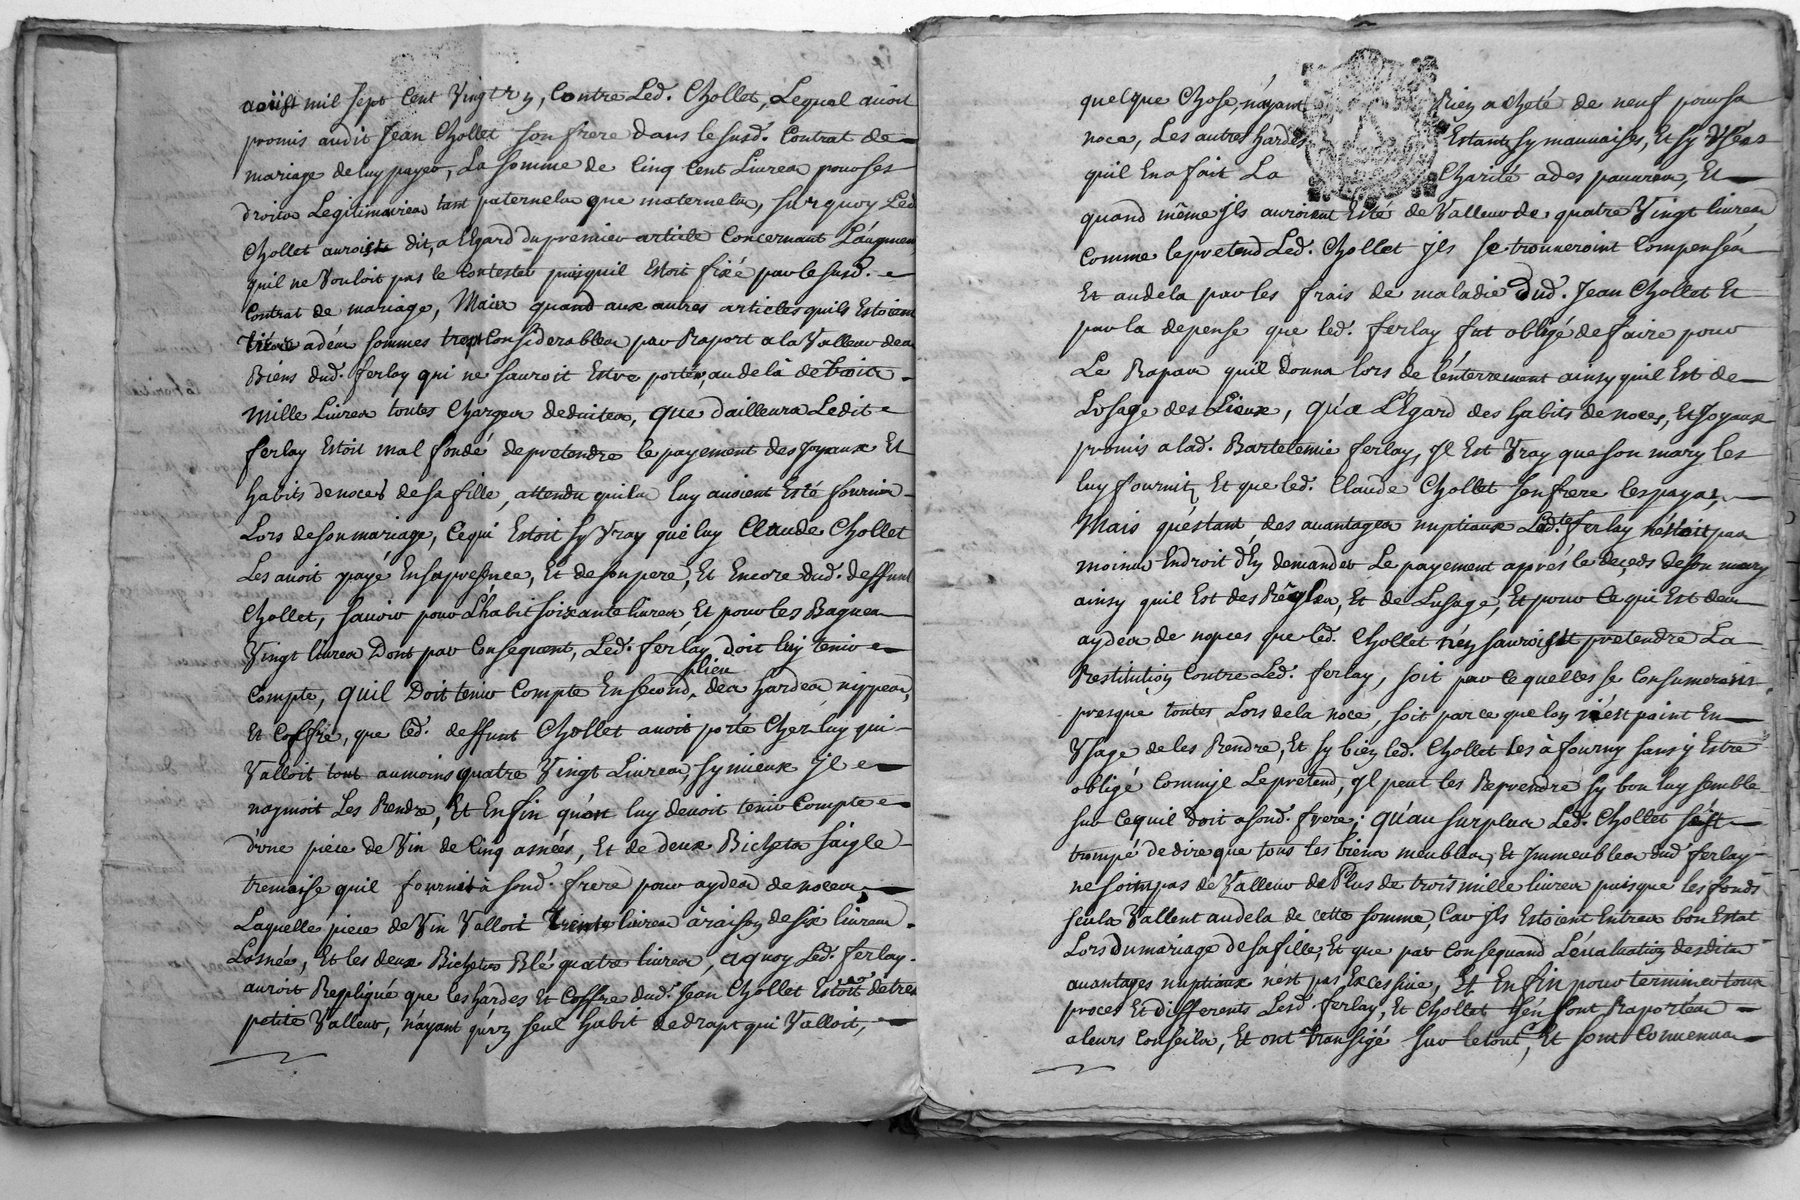 aoüst mil sept cent vingt , Contre Led. Chollet, Lequel avoit
promis audit Jean Chollet son frere dans le susd. Contrat de
mariage de luy payer, La somme de Cinq Cent Livres pour ses
droits Legitimaires tant paternels que maternels, surquoy Led
Chollet auroist dit, a l'Egard du premier article Concernant L'augment
quil ne Vouloit pas le Contester puisquil Estoit fixé par le susd.
Contrat de mariage, Mais quand aux autres articles quils Estoient
tirés a dés sommes trop Considerables par Raport a la Valleur des
Biens dud. ferlay qui ne sauroit Estre portés, au de là de trois
mille Livres toutes Charges deduites, que d'ailleurs Ledit
ferlay Estoit mal fondé de pretendre le payement des Joyaux Et
habits de noces de sa fille, attendu quils luy avoient Esté fournis
Lors de son mariage, Ce qui Estoit sy vray que luy Claude Chollet
Les avoit payé En sa presence, Et de son pere, Et Encore dud. deffunt
Chollet, sauoir pour L'habit soixante livres Et pour les Bagues
Vingt livres Dont par Consequent, Led. ferlay doit luy tenir
Compte, quil Doit tenir Compte En second lieu des hardes nippes,
Et Coffre, que led. deffunt Chollet avoit porté Chez luy qui
Valloit tout au moins quatre Vingt Livres sy mieux il
n'aymoit Les Rendre, Et Enfin qu'on luy devoit tenir Compte
d'une piece de Vin de Cinq asnées, Et de deux Bichets saigle
tremaise quil fournit à sond. frere pour aydes de noces,
Laquelle piece de Vin Valloit trente livres à raison de six livres
L'asnée, Et les deux Bichets Blé quatre livres, a quoy Led. ferlay
auroit Repliqué que les hardes Et Coffre dud. Jean Chollet Estoit de tres
petite Valleur, n'ayant qu'un seul habit de drapt qui Valloit,
quelque Chose, n'ayant Rien acheté de neuf pour sa
noce, Les autres hardes Estants sy mauvaises, Et sy Usées
quil En a fait La Charité a des pauvres, Et
quand même ils auroient Esté de Valleur de quatre Vingt livres
Comme le pretend Led. Chollet ils se trouveroint Compensés
Et au dela par les frais de maladie dud. Jean Chollet Et
par la depense que led. ferlay fut obligé de faire pour
Le Repas quil donna lors de l'enterrement ainsy quil Est de
L'usage des Lieux, qu'a L'Egard des habits de noces, Et Joyaux
promis a lad. Bartelemie ferlay, Il Est Vray que son mary les
luy fournit, Et que led. Claude Chollet son frere les paya,
Mais qu'estant des avantages nuptiaux Ladte. ferlay n'estoit pas
moins En droit d'En demander Le payement après le deçeds de son mary
ainsy quil Est des Règles, Et de L'usage, Et pour Ce qui Est des
aydes de nopces que led. Chollet n'en sauroist pretendre La
Restitution Contre Led. ferlay, soit par Ce quelles se Consumerent
presque toutes Lors de la noce, soit parce que lon n'est point En
Usage de les Rendre, Et sy bien led. Chollet les à fourny sans y Estre
obligé Comm'il Le pretend, Il peut les Reprendre sy bon luy semble
sur Ce quil doit a sond. frere. Qu'au surplus Led. Chollet s'est
trompé de dire que tous les biens meubles, Et Immeubles dud. ferlay
ne soint pas de Valleur de Plus de trois mille livres puisque les fonds
seuls Vallent au dela de cette somme, Car ils Estoient En tres bon Estat
Lors du mariage de sa fille, Et que par Consequand L'évaluation desdits
avantages nuptiaux n'est pas Excessive, Et Enfin pour terminer tous
proces Et differents Lesd. ferlay, Et Chollet s'en sont Raportés
a leurs Conseils, Et ont transigé sur le tout, Et sont Convenus